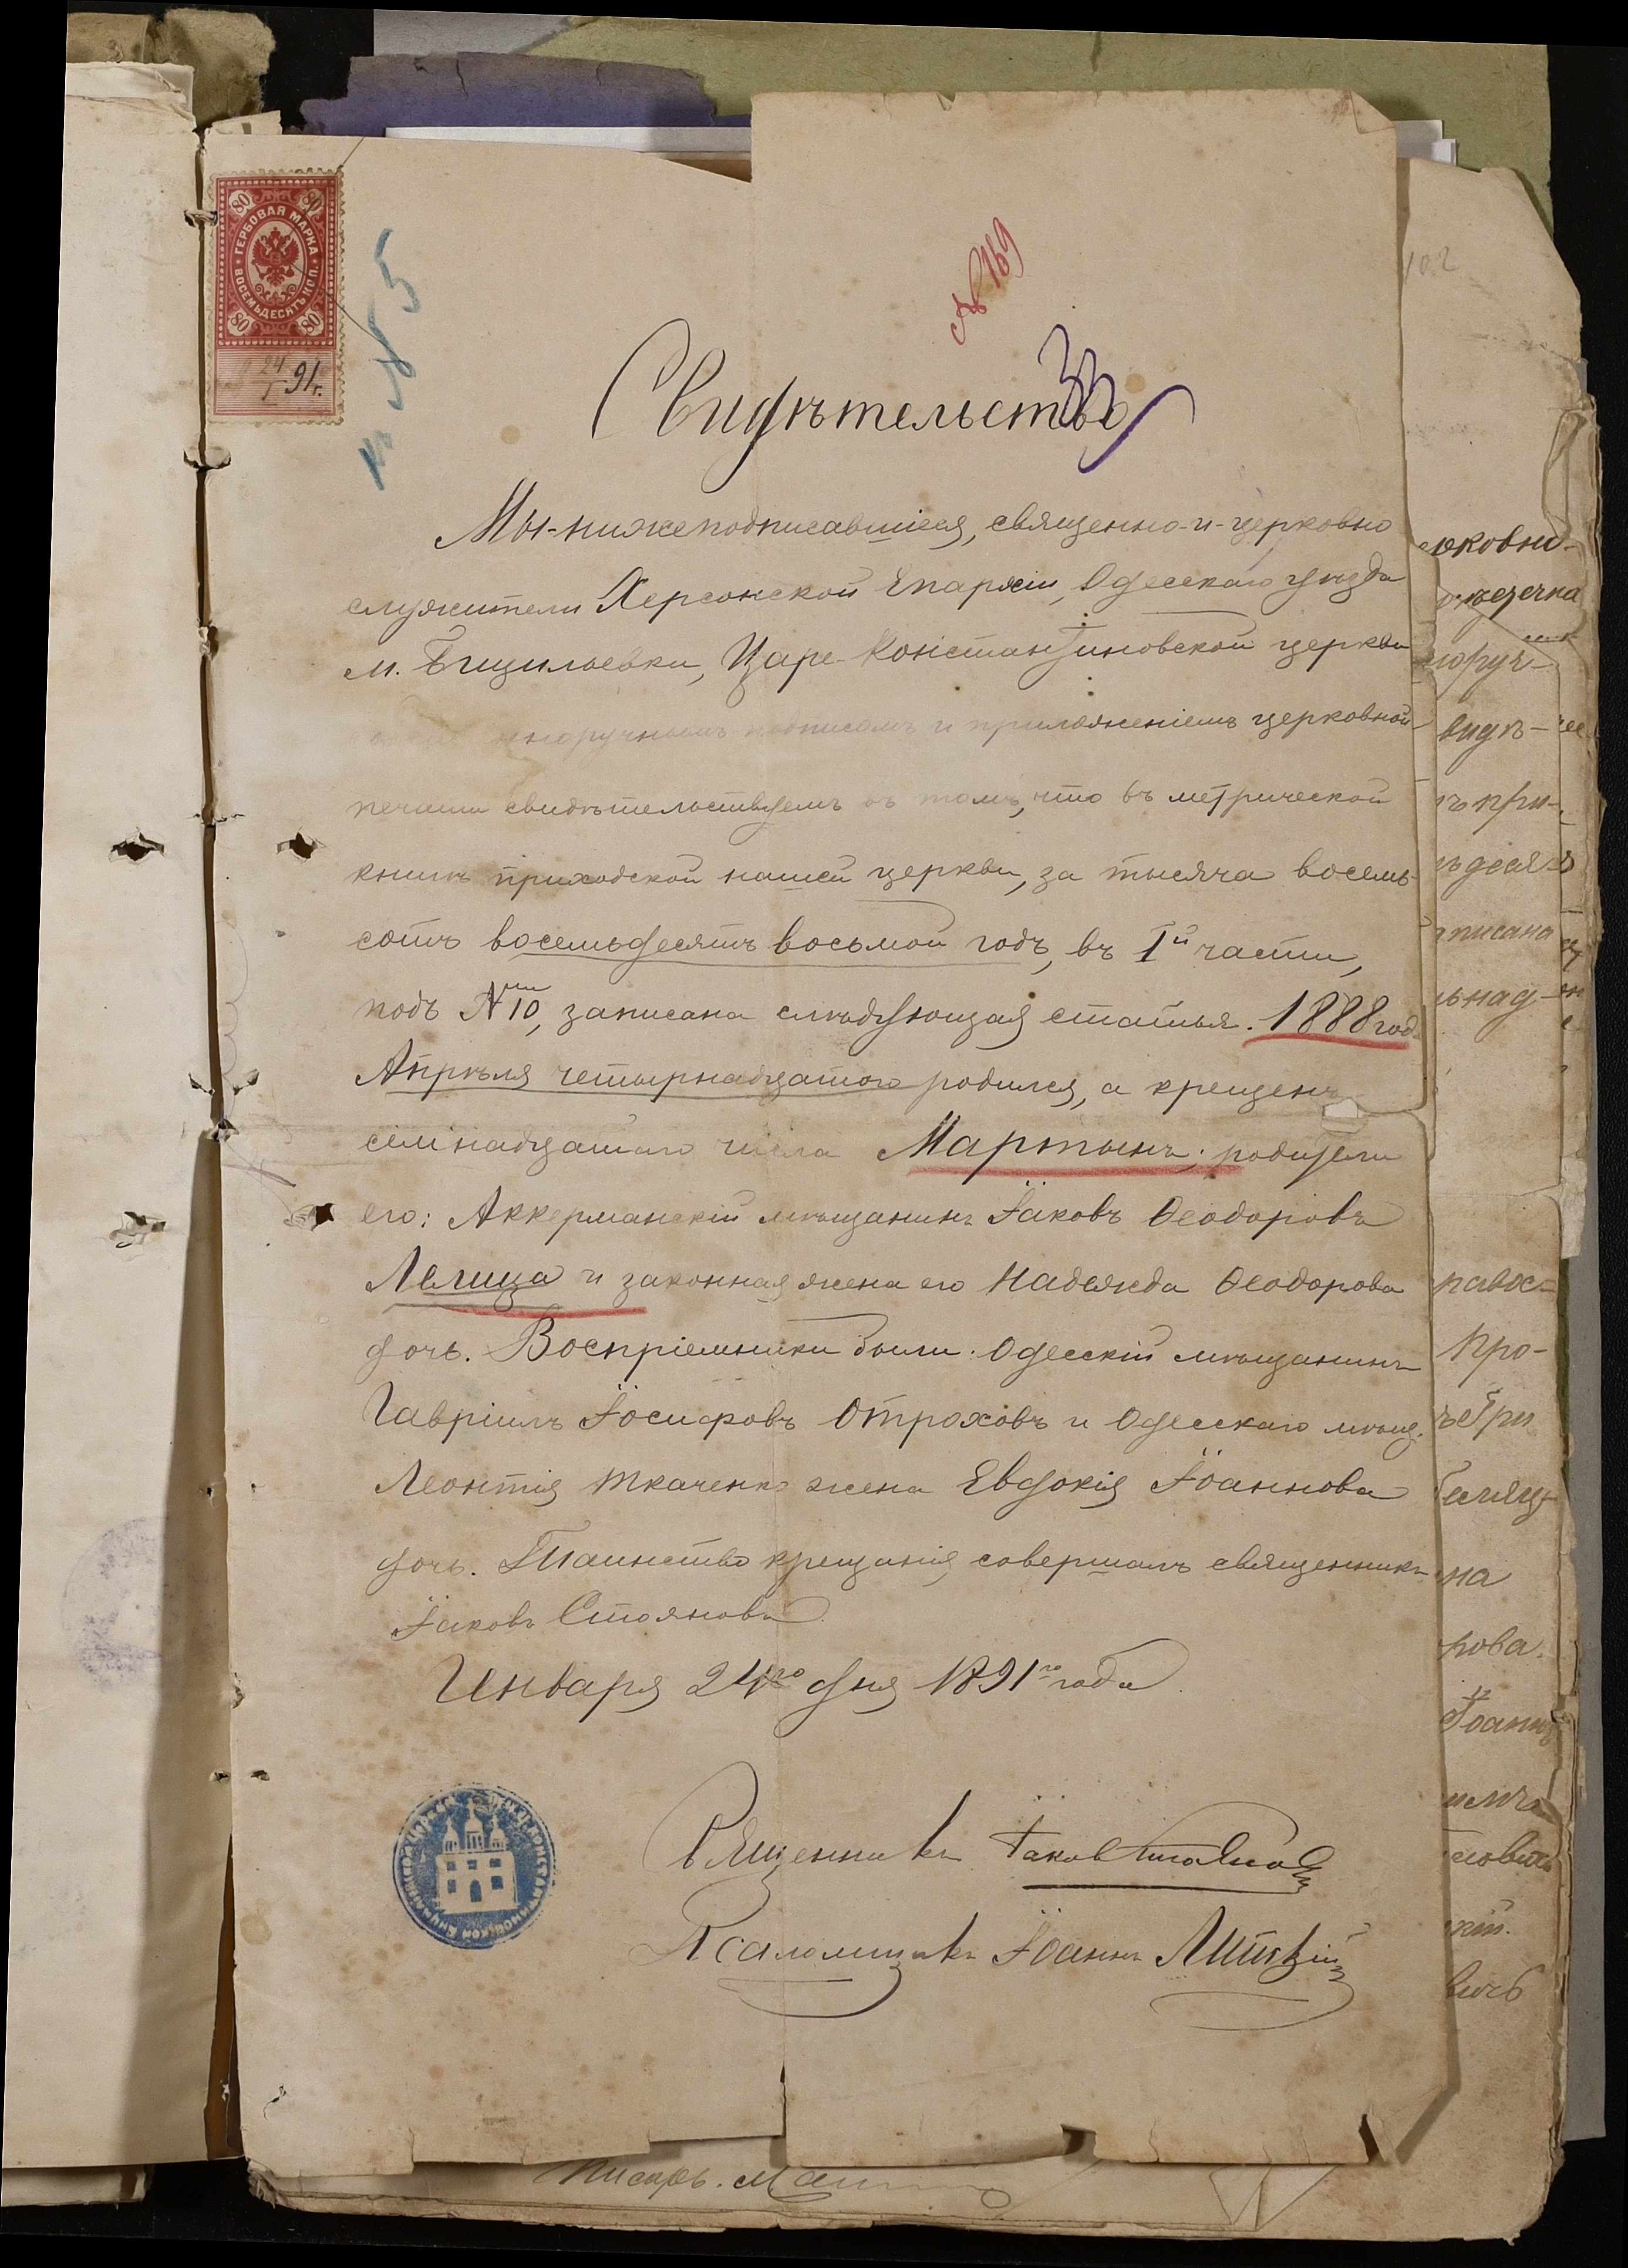 80 80
ГЕРБОВАЯ МАРКА
ВОСЕМЬДЕСЯТЪ КОП.
80 80
24/I 91 г.
№ 5
№ 169
Свидѣтельство
Мы-нижеподписавшіеся, священно-и-церковно
служители Херсонской Епархіи, Одесскаго уѣзда
м. Анчилоевки, Царе-Константиновской церкви
подписомъ и приложеніемъ церковной
печати свидѣтельствуемъ въ томъ, что въ метрической
книгѣ приходской нашей церкви, за тысяча восемь-
сотъ восемьдесятъ восьмой годъ, въ Iй части,
подъ № 10, записана слѣдующая статья. 1888 год.
Апрѣля четырнадцатого родился, а крещенъ
семнадцатаго числа Мартынъ; родители
его: Аккерманскій мѣщанинъ Іаковъ Ѳеодоровъ
Лелица и законная жена его Надежда Ѳеодорова
дочь. Воспріемники были: Одесскій мѣщанинъ
Гавріилъ Іосифовъ Отроховъ и Одесскаго мѣщ.
Леонтія Ткаченко жена Евдокія Іоаннова
дочь. Таинство крещенія совершалъ священникъ
Іаковъ Стояновъ.
Января 24го дня 1891го года.
Священникъ Іаковъ Стояновъ
Псаломщикъ Іоаннъ
102
ручъ-
видѣ-
ъ при-
писана
ьнад-
Про-
на
рова.
Іоанн
вичъ
Писарь.